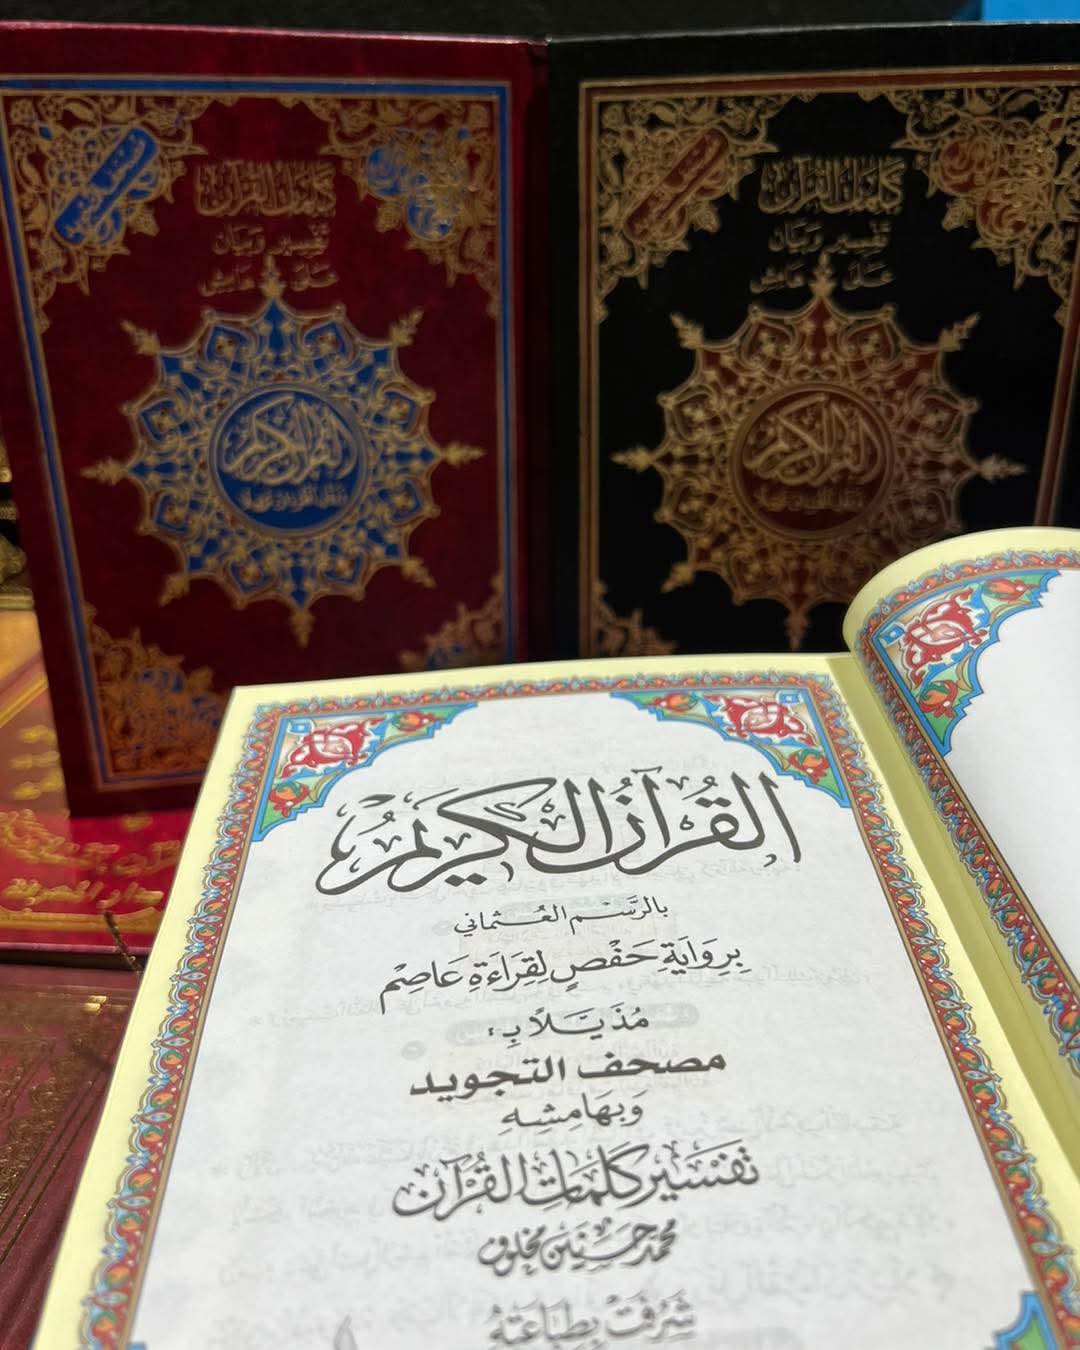 كلمات القرآن
تفسير وبيان
على هامش
القرآن الكريم
كلمات القرآن
تفسير وبيان
على هامش
القرآن الكريم
القُرآنُ الكَرِيمُ
بالرَّسْمِ العُثماني
بِرِوَايَةِ حَفْصٍ لِقِرَاءَةِ عَاصِمْ
مُذَيَّلاً بِ:
مصحف التجويد
وَبهَامِشِهِ
تَفسَيْر كَلِمَاتِ القُرْآن
محمد حسنين مخلوف
شَرُفَتْ بِطِبَاعَتِهِ